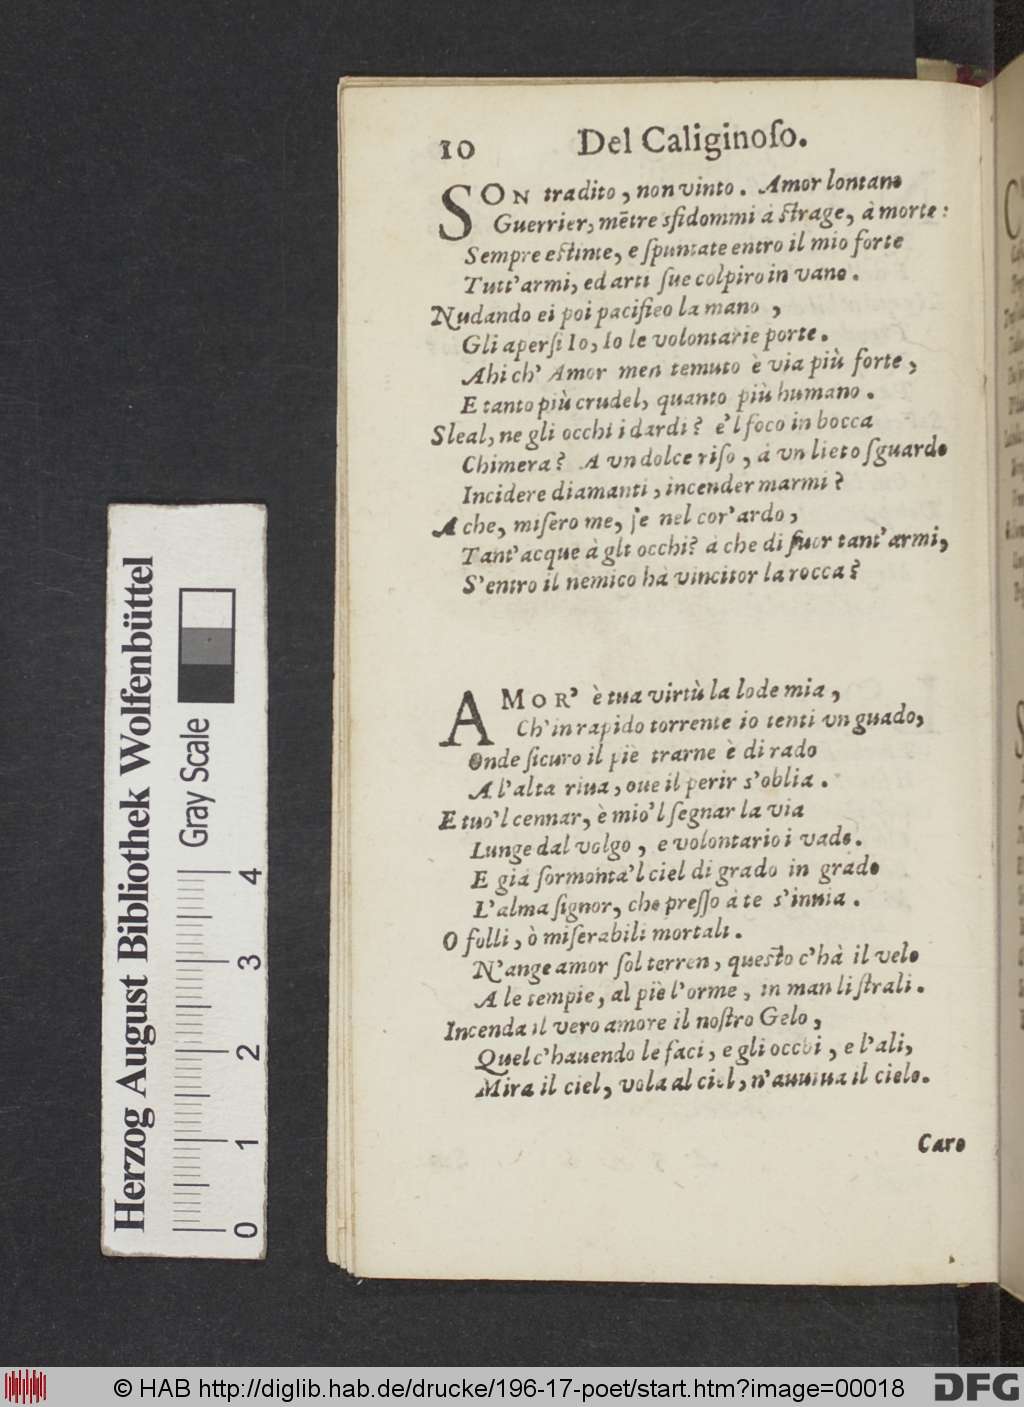 10 Del Caliginoſo.
SON tradito, non vinto. Amor lontano
Guerrier, mẽtre sfidommi à ſtrage, à morte:
Sempre eſtinte, e ſpuntate entro il mio forte
Tutt'armi, ed arti ſue colpiro in vano.
Nudando ei poi pacifico la mano,
Gli aperſi Io, Io le volontarie porte.
Ahi ch' Amor men temuto è via più forte,
E tanto più crudel, quanto più humano.
Sleal, ne gli occhi i dardi? e'l foco in bocca
Chimera? A vn dolce riſo, à vn lieto ſguardo
Incidere diamanti, incender marmi?
A che, miſero me, ſe nel cor'ardo,
Tant'acque à gli occhi? à che di fuor tant'armi,
S'entro il nemico hà vincitor la rocca?
AMOR' è tua virtù la lode mia,
Ch'in rapido torrente io tenti vn guado,
Onde ſicuro il piè trarne è di rado
A l'alta riua, oue il perir s'oblia.
E tuo'l cennar, è mio'l ſegnar la via
Lunge dal volgo, e volontario i vado.
E già ſormonta'l ciel di grado in grado
L'alma ſignor, che preſſo à te s'inuia.
O folli, ò miſerabili mortali.
N'ange amor ſol terren, queſto c'hà il velo
A le tempie, al piè l'orme, in man li ſtrali.
Incenda il vero amore il noſtro Gelo,
Quel c'hauendo le faci, e gli occhi, e l'ali,
Mira il ciel, vola al ciel, n'auuiua il cielo.
Caro
Herzog August Bibliothek Wolfenbüttel
Gray Scale
0 1 2 3 4
© HAB http://diglib.hab.de/drucke/196-17-poet/start.htm?image=00018
DFG